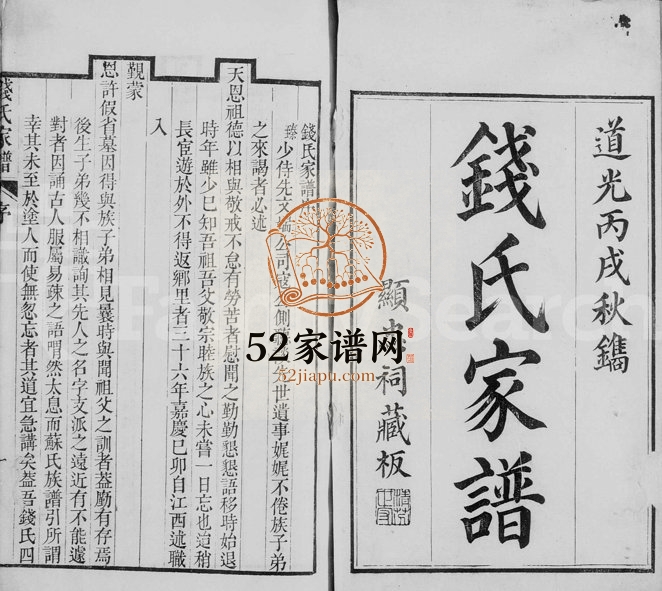 道光丙戌秋鐫
錢氏家譜
顯忠祠藏板
錢氏家譜
臻少侍先文端公司寇公側
先世遺事娓娓不倦族子弟
之來謁者必述
天恩祖德以相與敬戒不怠有勞苦者慰問之勤勤懇懇語移時始退
時年雖少已知吾祖吾父敬宗睦族之心未嘗一日忘也迨稍
長宦遊於外不得返鄉里者三十六年嘉慶己卯自江西述職
入
覲蒙
恩許假省墓因得與族子弟相見曩時與聞祖父之訓者葢尠有存焉
後生子弟幾不相識詢其先人之名字支派之遠近有不能遽
對者因誦古人服屬易疎之語喟然太息而蘇氏族譜引所謂
幸其未至於塗人而使無忽忘者其道宜急講矣葢吾錢氏四
錢氏家譜
序
一
52家谱网
52jiapu.com
FamilySearch